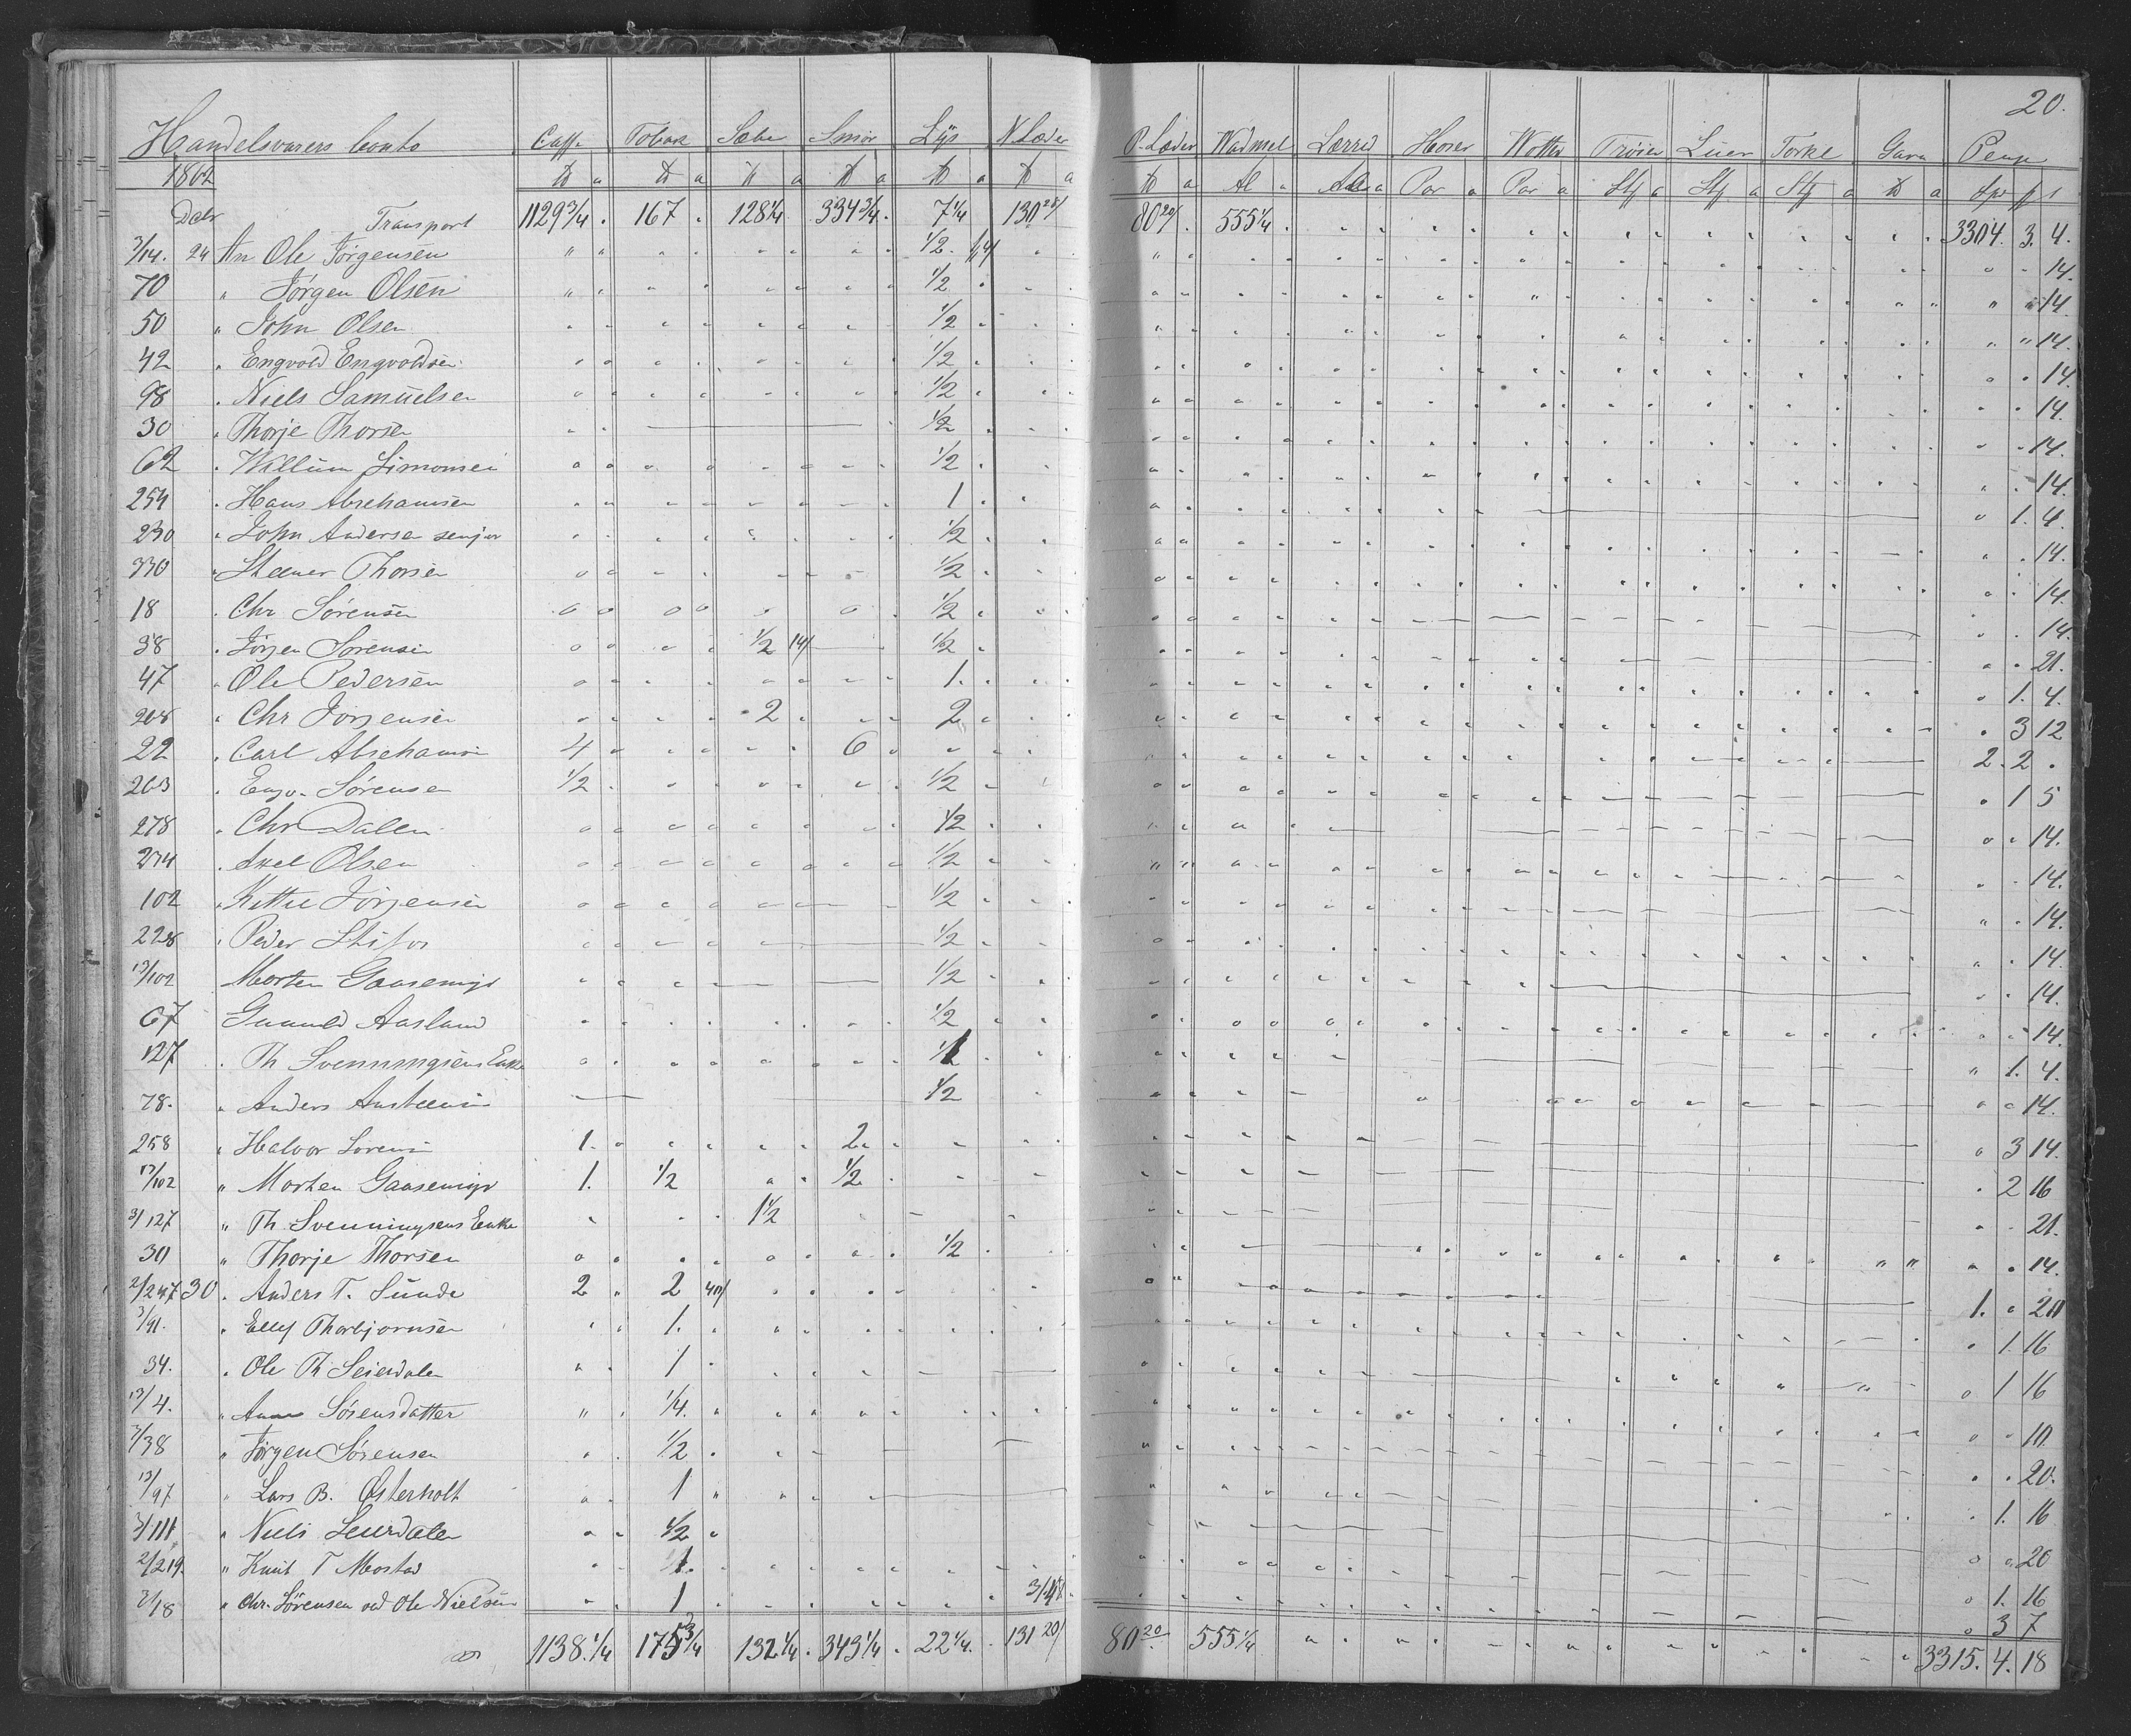 20.
Handelsvarers Conto Caffe Tobak Sæbe Smør Lÿs N. Læder P. Læder Wadmel Lærred Hoser Wotter Trøier Luer Torke Garn Penge
1862 ℔ a ℔ a ℔ a ℔ a ℔ a ℔ a ℔ a Al a Al a Par a Par a Stf a Stf a Stf a ℔ a Spd ß
Dcbr Transport 1129 3/4 167 128 1/4 334 3/4 7 1/4 130 80 20/ 555 1/4 3304. 3. 4.
3/14. 24 An Ole Jørgensen 1/2 14/ 14.
70 " Jørgen Olsen 1/2 14.
50 " John Olsen 1/2 14.
42 " Engvold Engvoldsen 1/2 14.
98 " Niels Samuelsen 1/2 14.
30 " Thorje Thorsen 1/2 14.
62 " Willum Simonsen 1/2 14.
254 " Hans Abrehamsen 1 1. 4.
230 " John Andersen senjor 1/2 14.
330 " Steener Thorsen 1/2 14.
18 " Chr Sørensen 1/2 14.
38 " Jørgen Sørensen 1/2 14/ 1/2 21.
47 " Ole Pedersen 1. 1. 4.
208 " Chr Jørgensen 2 2 3 12
22 " Carl Abrehamsen 4 6 2. 2
203 " Engv. Sørensen 1/2 1/2 1 5
278 " Chr Dalen 1/2 14.
274 " Axel Olsen 1/2 14.
102 " Kittil Jørgensen 1/2 14.
228 " Peder 1/2 14.
13/102 Morten Gaasemyr 1/2 14.
67 Gunuld Aasland 1/2 14.
127 " Th Svenningsens Enke 1 1. 4.
78. " Anders Austeensen 1/2 14.
258 " Halvor Sørensen 1. 2 3 14.
13/102 " Morten Gaasemyr 1. 1/2 1/2 2 16
3/127 " Th. Svenningsens Enke 1 1/2 21.
30 " Thorje Thorsen 1/2 14.
2/247 30 " Anders T. Sunde 2 2 40/ 1. 20
3/91. " Ellef Thorbjørnsen 1. 1. 16
34. " Ole Th Seierdalen 1 1 16
13/4. " Anne Sørensdatter 1/4. 10
3/38 " Jørgen Sørensen 1/2 20.
13/97 " Lars B. Østerholt 1 1. 16
3/111 " Niels Seierdalen 1/2 20
2/219. " Knut T Mostad 1. 1. 16
3/18 " Chr. Sørensen ved Ole Nielsen 1 3/4 3 7
1138. 1/4 175 3/4 132 1/4 343 1/4 22 1/4. 131 20/ 80 20 555 1/4 3315. 4. 18